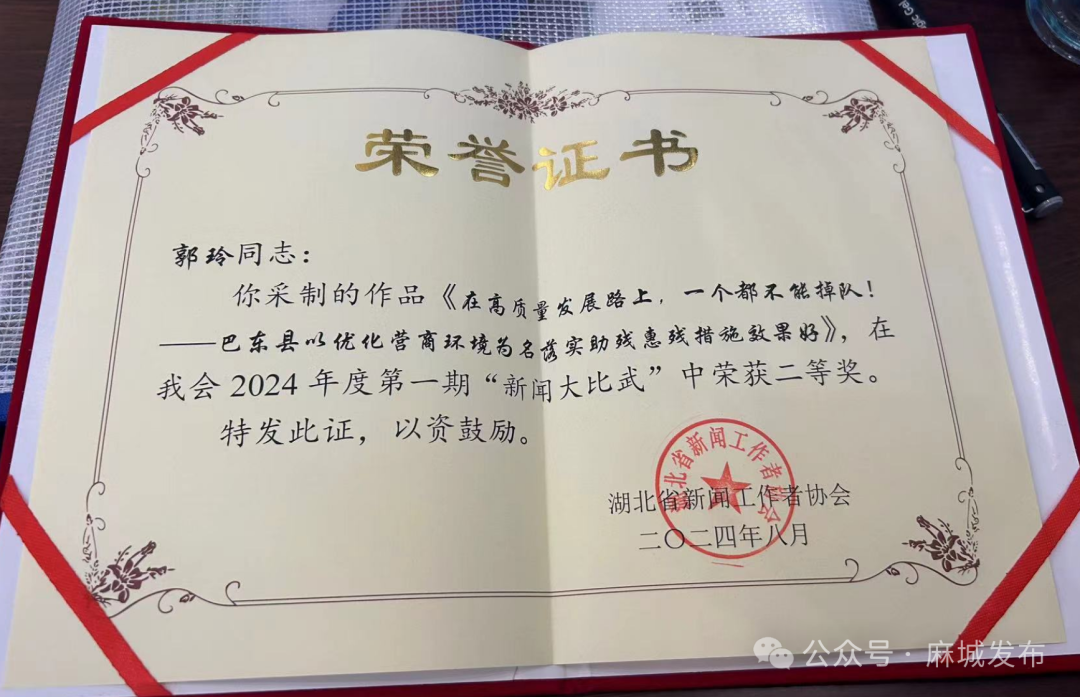 荣誉证书
郭玲同志：
你采制的作品《在高质量发展路上，一个都不能掉队！
——巴东县以优化营商环境为名落实助残惠残措施效果好》，在
我会2024年度第一期“新闻大比武”中荣获二等奖。
特发此证，以资鼓励。
湖北省新闻工作者协会
二〇二四年八月
湖北省新闻工作者协会
公众号·麻城发布